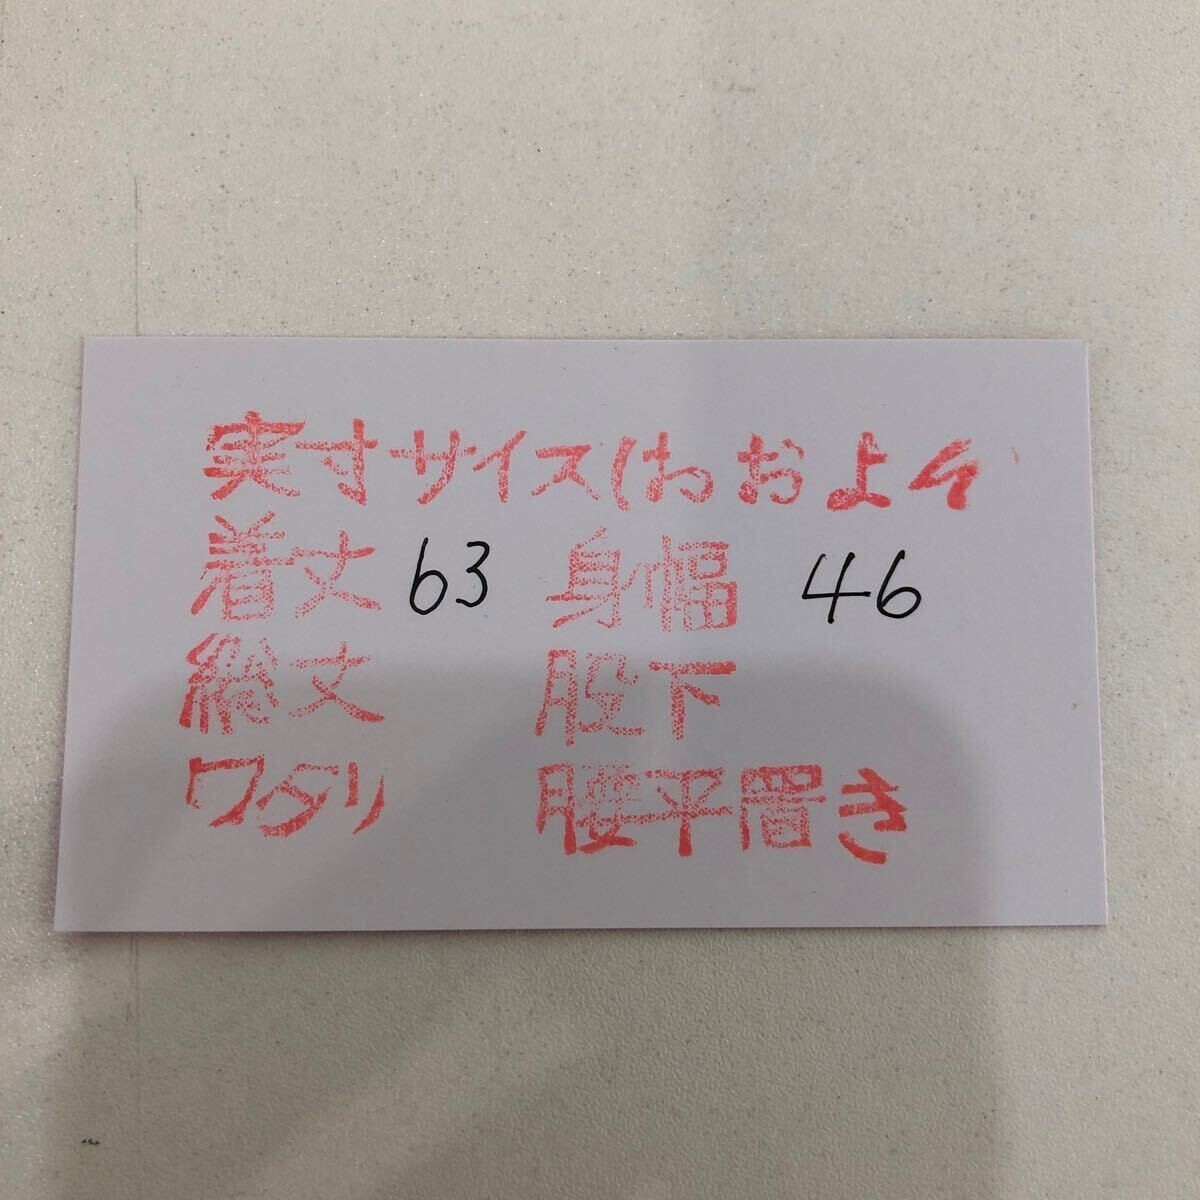 実寸サイズ(おおよそ
着丈 63 身幅 46
総丈 股下
ワタリ 腰平置き